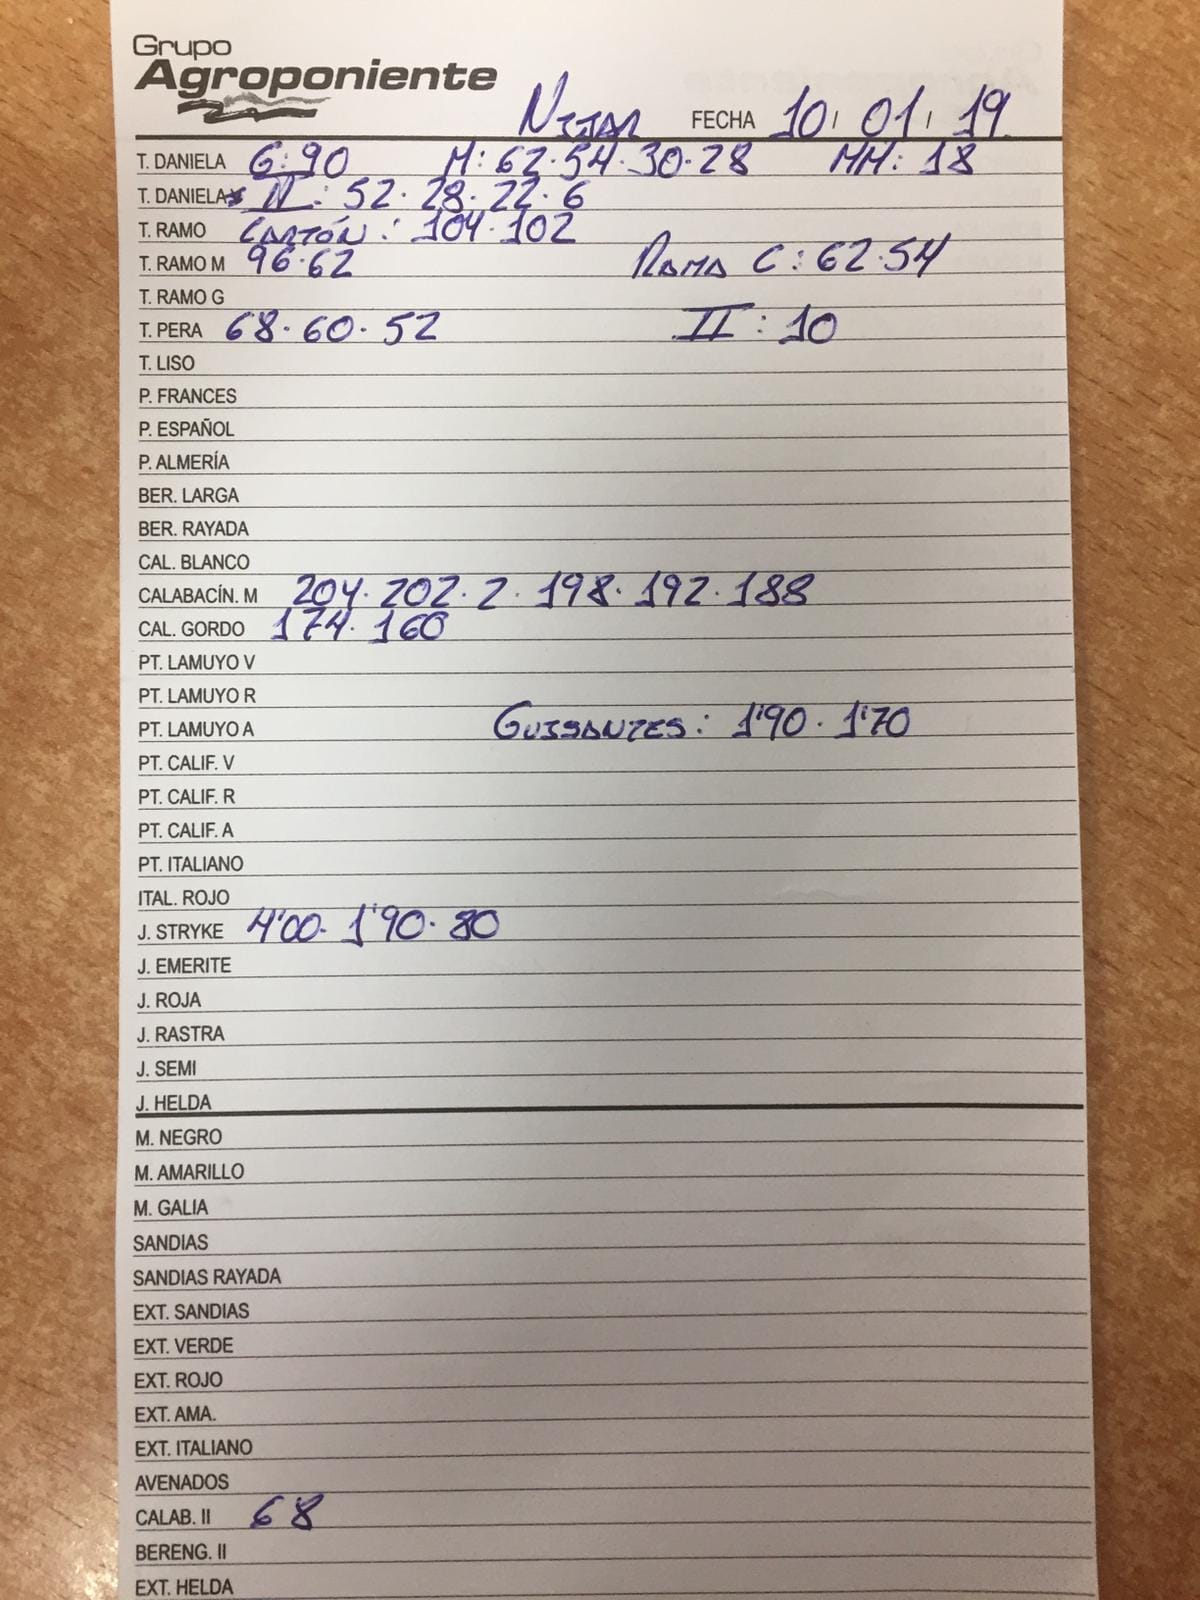 Grupo
Agroponiente
NIJAR FECHA 10 / 01 / 19
T. DANIELA G: 90 M: 62·54·30·28 MM: 18
T. DANIELA N: 52·28·22·6
T. RAMO CARTÓN: 104·102
T. RAMO M 96·62 RAMA C: 62·54
T. RAMO G
T. PERA 68·60·52 II: 10
T. LISO
P. FRANCES
P. ESPAÑOL
P. ALMERÍA
BER. LARGA
BER. RAYADA
CAL. BLANCO
CALABACÍN. M 204·202·2·198·192·188
CAL. GORDO 174·160
PT. LAMUYO V
PT. LAMUYO R
PT. LAMUYO A GUISANTES: 1'90·1'70
PT. CALIF. V
PT. CALIF. R
PT. CALIF. A
PT. ITALIANO
ITAL. ROJO
J. STRYKE 4'00·1'90·80
J. EMERITE
J. ROJA
J. RASTRA
J. SEMI
J. HELDA
M. NEGRO
M. AMARILLO
M. GALIA
SANDIAS
SANDIAS RAYADA
EXT. SANDIAS
EXT. VERDE
EXT. ROJO
EXT. AMA.
EXT. ITALIANO
AVENADOS
CALAB. II 68
BERENG. II
EXT. HELDA